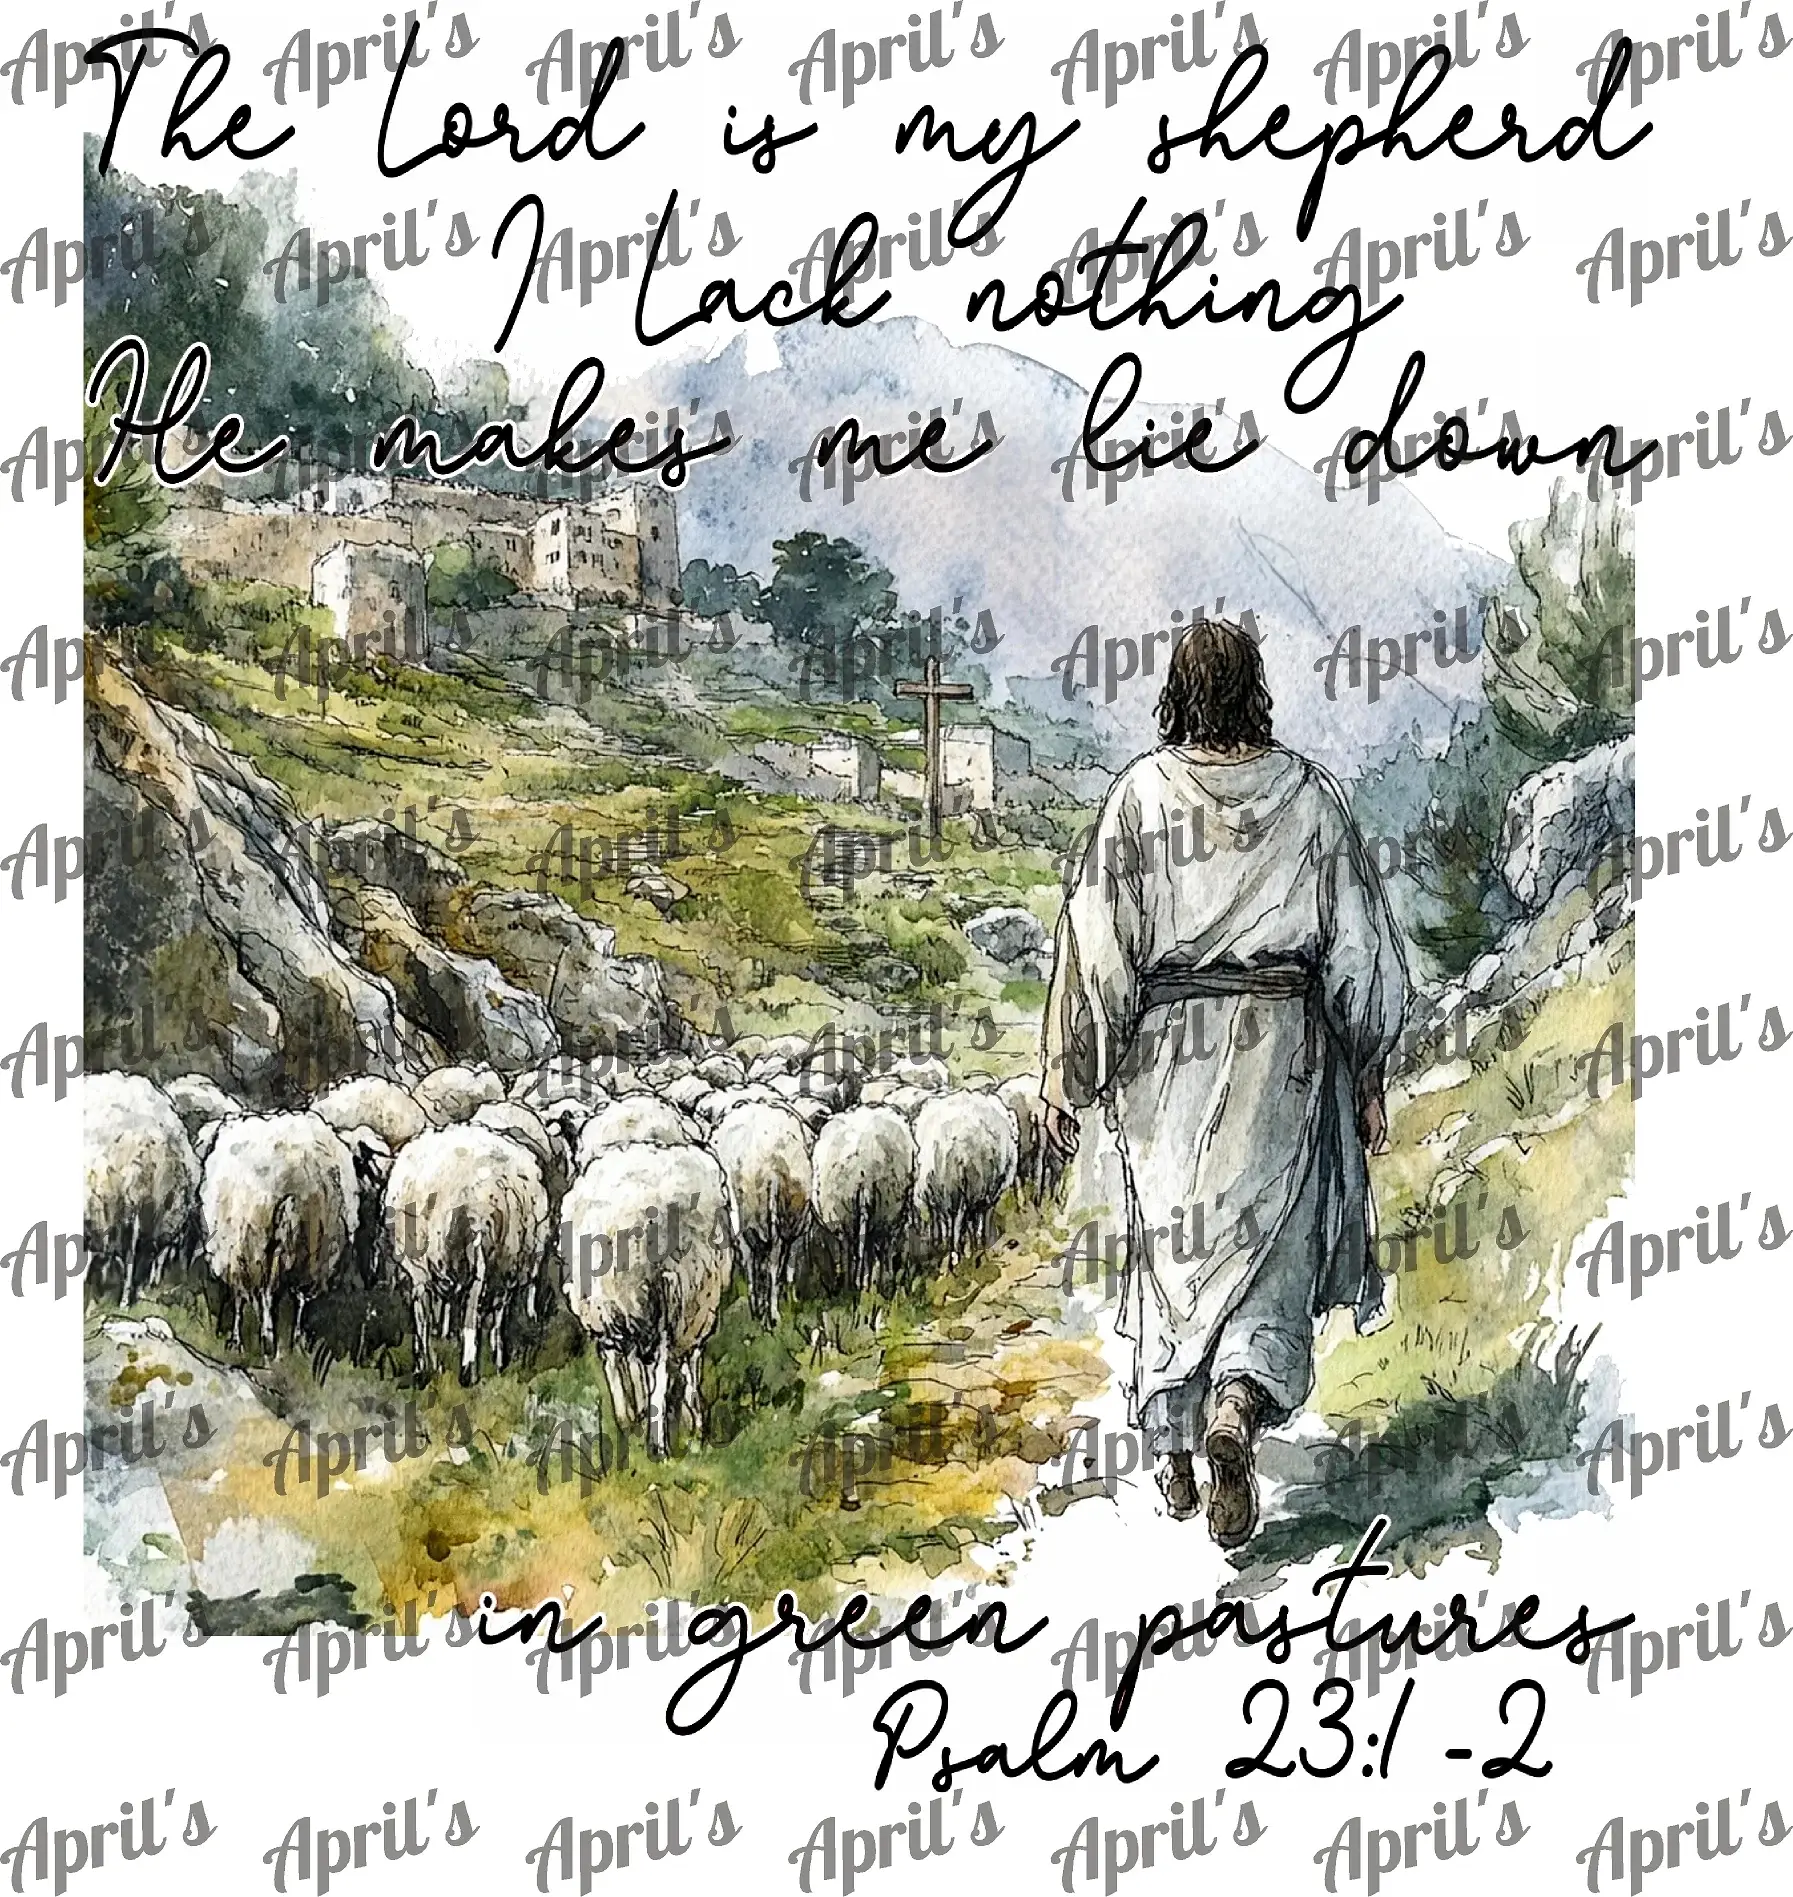 April's April's April's April's April's April's April's
The Lord is my shepherd
April's April's April's April's April's April's April's
I Lack nothing
He makes me lie down
April's April's April's April's April's April's April's
April's April's April's April's April's April's April's
April's April's April's April's April's April's April's
April's April's April's April's April's April's April's
April's April's April's April's April's April's April's
April's April's April's April's April's April's April's
in green pastures
April's April's April's April's April's April's April's
Psalm 23:1-2
April's April's April's April's April's April's April's